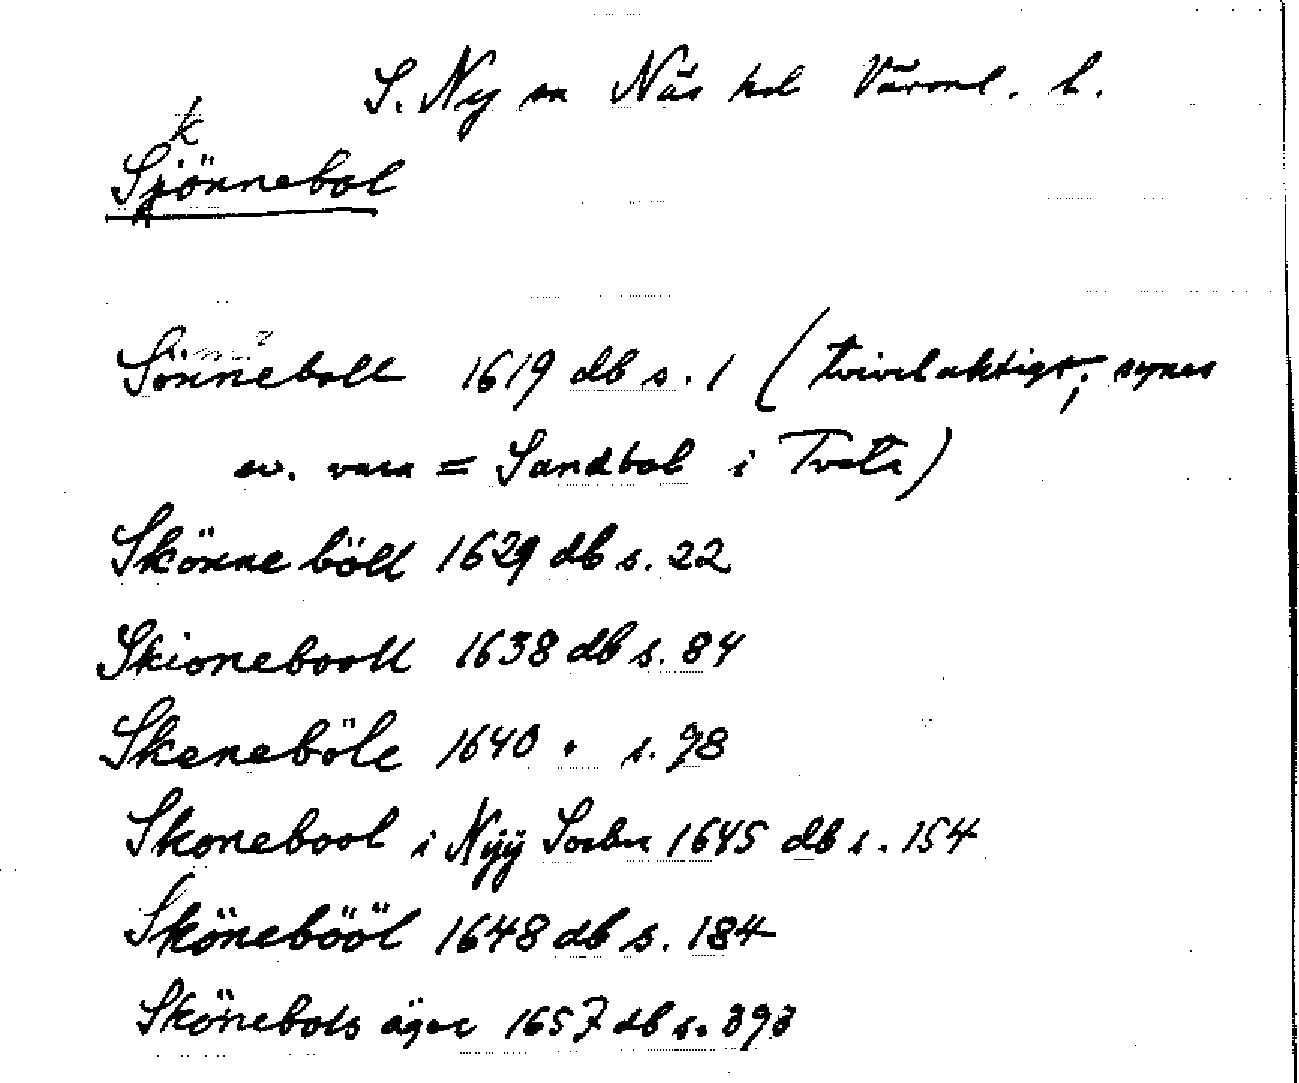 S. Ny sn Näs hd Värml. l.
k
Sjönnebol
Sonneboll 1619 db s. 1 (tvivelaktigt; synes
ev. vara = Sandbol i Tveta)
Skönne böll 1629 db s. 22
Skionebooll 1638 db s. 84
Skeneböle 1640 " s. 98
Skonebool i Nÿÿ Sochn 1645 db s. 154
Skönebööl 1648 db s. 184
Skönebols äger 1657 db s. 393